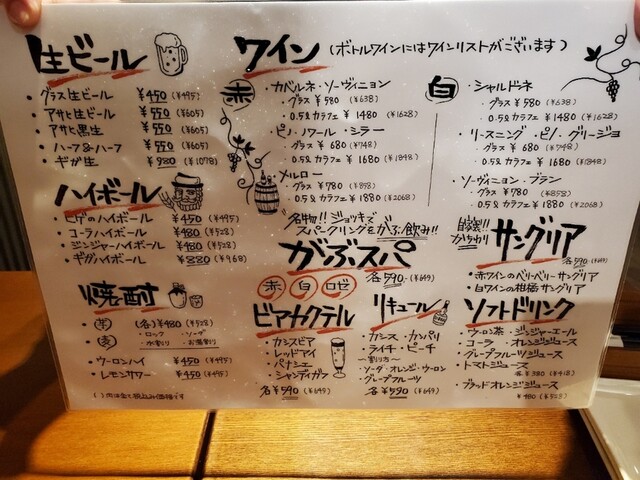 生ビール
・グラス生ビール ¥450 (¥495)
・アサヒ生ビール ¥550 (¥605)
・アサヒ黒生 ¥550 (¥605)
・ハーフ&ハーフ ¥550 (¥605)
・ギガ生 ¥980 (¥1078)
ハイボール
・ヒゲのハイボール ¥450 (¥495)
・コーラハイボール ¥480 (¥528)
・ジンジャーハイボール ¥480 (¥528)
・ギガハイボール ¥880 (¥968)
焼酎
・芋 (各)¥480 (¥528)
・麦 ・ロック ・ソーダ
・水割り ・お湯割り
・ウーロンハイ ¥450 (¥495)
・レモンサワー ¥450 (¥495)
( )内は全て税込み価格です
ワイン (ボトルワインにはワインリストがございます)
赤
・カベルネ・ソーヴィニョン
・グラス ¥580 (¥638)
・0.5ℓカラフェ ¥1480 (¥1628)
・ピノ・ノワール・シラー
・グラス ¥680 (¥748)
・0.5ℓカラフェ ¥1680 (¥1848)
・メルロー
・グラス ¥780 (¥858)
・0.5ℓカラフェ ¥1880 (¥2068)
白
・シャルドネ
・グラス ¥580 (¥638)
・0.5ℓカラフェ ¥1480 (¥1628)
・リースニング・ピノ・グリージョ
・グラス ¥680 (¥748)
・0.5ℓカラフェ ¥1680 (¥1848)
・ソーヴィニョン・ブラン
・グラス ¥780 (¥858)
・0.5ℓカラフェ ¥1880 (¥2068)
名物!!ジョッキで
スパークリングをがぶ飲み!!
がぶスパ
各590- (¥649)
赤 白 ロゼ
自家製!!
サングリア
各590- (¥649)
・赤ワインのベリーベリーサングリア
・白ワインの柑橘サングリア
ビアカクテル
・カシスビア
・レッドアイ
・パナシェ
・シャンディガフ
各¥590 (¥649)
リキュール
・カシス・カンパリ
・ライチ・ピーチ
〜割り方〜
・ソーダ・オレンジ・ウーロン
・グレープフルーツ
各¥590 (¥649)
ソフトドリンク
・ウーロン茶・ジンジャーエール
・コーラ ・オレンジジュース
・グレープフルーツジュース
・トマトジュース
各¥380 (¥418)
・ブラッドオレンジジュース
¥480 (¥528)